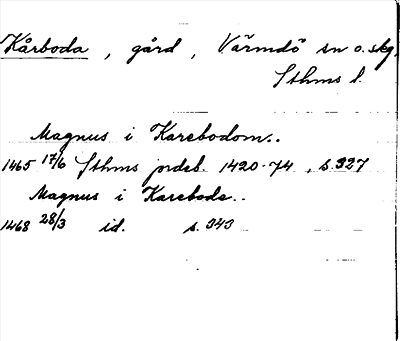 Kårboda, gård, Värmdö sn o. skg,
Sthms l.
Magnus i Karebodom..
1465 17/6 Sthms jordeb. 1420-74, s. 327
Magnus i Kareboda..
1468 28/3 id. s. 343